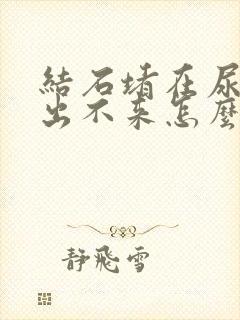 結石堵在尿
出不来怎麼
静飛雪